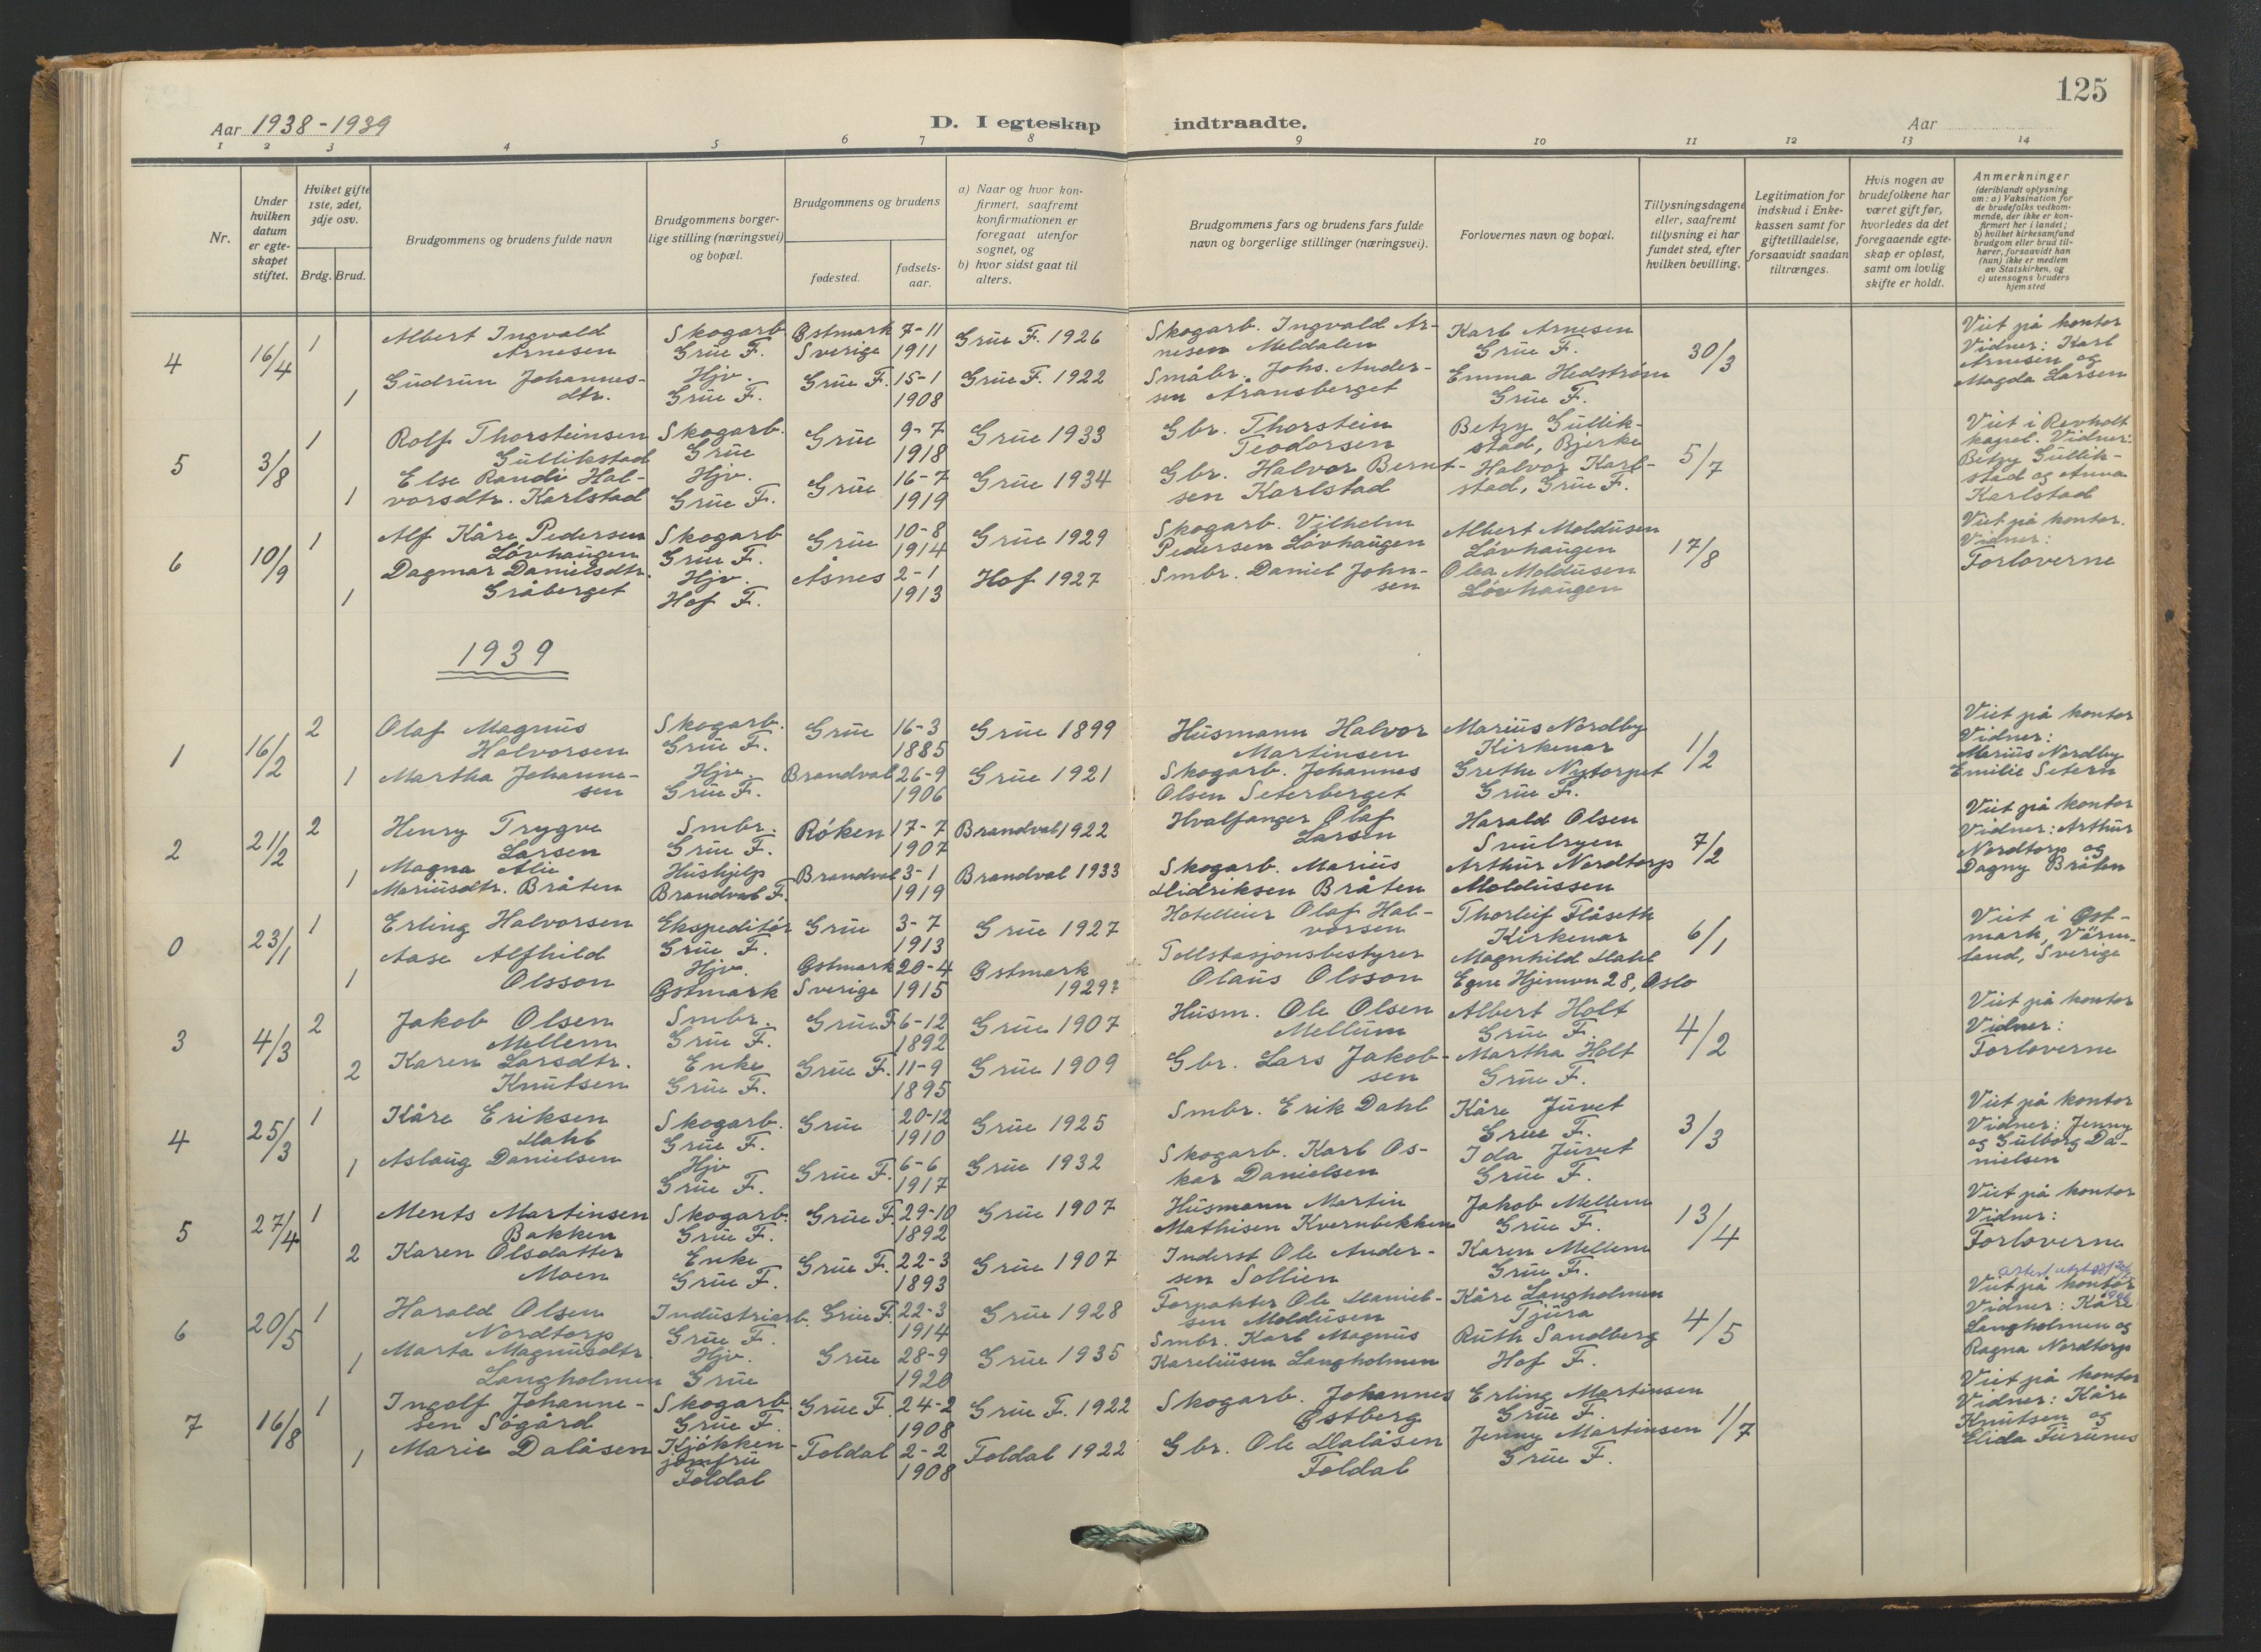 125
Aar 1938-1939
D. I egteskap indtraadte.
Aar
1 2 3 4 5 6 7 8 9 10 11 12 13 14
Nr.
Under hvilken datum er egteskapet stiftet.
Hviket gifte 1ste, 2det, 3dje osv.
Brdg. Brud.
Brudgommens og brudens fulde navn
Brudgommens borgerlige stilling (næringsvei) og bopæl.
Brudgommens og brudens
fødested.
fødselsaar.
a) Naar og hvor konfirmert, saafremt konfirmationen er foregaat utenfor sognet, og
b) hvor sidst gaat til alters.
Brudgommens fars og brudens fars fulde navn og borgerlige stillinger (næringsvei).
Forlovernes navn og bopæl.
Tillysningsdagene eller, saafremt tillysning ei har fundet sted, efter hvilken bevilling.
Legitimation for indskud i Enkekassen samt for giftetilladelse, forsaavidt saadan tiltrænges.
Hvis nogen av brudefolkene har været gift før, hvorledes da det foregaaende egteskap er opløst, samt om lovlig skifte er holdt.
Anmerkninger
(deriblandt oplysning om: a) Vaksination for de brudefolks vedkommende, der ikke er konfirmert her i landet;
b) hvilket kirkesamfund brudgom eller brud tilhører, forsaavidt han (hun) ikke er medlem av Statskirken, og
c) utensogns bruders hjemsted
4 16/4 1 Albert Ingvald Arnesen Skogarb. Grue F. Østmark Sverige 7-11 1911 Grue F. 1926 Skogarb. Ingvald Arnesen Meldalen Karl Arnesen Grue F. 30/3 Viet på kontor Vidner: Karl Arnesen og Magda Larsen
1 Gudrun Johannesdtr. Hjv. Grue F. Grue F. 15-1 1908 Grue F. 1922 Småbr. Johs. Andersen Åransberget Emma Hedstrøm Grue F.
5 3/8 1 Rolf Thorsteinsen Gullikstad Skogarb. Grue Grue 9-7 1918 Grue 1933 Gbr. Thorstein Teodorsen Betzy Gullikstad, Bjerke 5/7 Viet i Revholt kapel. Vidner: Betzy Gullikstad og Anna Karlstad
1 Else Randi Halvorsdtr. Karlstad Hjv. Grue F. Grue 16-7 1919 Grue 1934 Gbr. Halvor Berntsen Karlstad Halvor Karlstad, Grue F.
6 10/9 1 Alf Kåre Pedersen Lövhaugen Skogarb Grue F. Grue 10-8 1914 Grue 1929 Skogarb. Vilhelm Pedersen Lövhaugen Albert Moldusen Lövhaugen 17/8 Viet på kontor. Vidner: Forloverne
1 Dagmar Danielsdtr. Gråberget Hjv. Hof F. Åsnes 2-1 1913 Hof 1927 Smbr. Daniel Johnsen Olea Moldusen Lövhaugen
1939
1 16/2 2 Olaf Magnus Halvorsen Skogarb. Grue F. Grue 16-3 1885 Grue 1899 Husmann Halvor Martinsen Marius Nordby Kirkenær 1/2 Viet på kontor Vidner: Marius Nordby Emilie Setern
1 Martha Johannesen Hjv. Grue F. Brandval 26-9 1906 Grue 1921 Skogarb. Johannes Olsen Seterberget Grethe Nytorpet Grue F.
2 21/2 2 Henry Trygve Larsen Smbr. Grue F. Röken 17-7 1907 Brandval 1922 Hvalfanger Olaf Larsen Harald Olsen Svulryen 7/2 Viet på kontor Vidner: Arthur Nordtorp og Dagny Bråten
1 Magna Alie Mariusdtr. Bråten Hushjelp Brandval F. Brandval 3-1 1919 Brandval 1933 Skogarb. Marius Didriksen Bråten Arthur Nordtorp Moldussen
0 23/1 1 Erling Halvorsen Ekspeditör Grue F. Grue 3-7 1913 Grue 1927 Hotelleier Olaf Halvorsen Thorleif Flåseth Kirkenær 6/1 Viet i Østmark, Värmland, Sverige
1 Aase Alfhild Olsson Hjv. Østmark Østmark Sverige 20-4 1915 Østmark 1929? Tollstasjonsbestyrer Olaus Olsson Magnhild Dahl Egne Hjemvn 28, Oslo
3 4/3 2 Jakob Olsen Mellem Smbr. Grue F. Grue F. 6-12 1892 Grue 1907 Husm. Ole Olsen Mellum Albert Holt Grue F. 4/2 Viet på kontor Vidner: Forloverne
2 Karen Larsdtr. Knutsen Enke Grue F. Grue F. 11-9 1895 Grue 1909 Gbr. Lars Jakobsen Martha Holt Grue F.
4 25/3 1 Kåre Eriksen Dahl Skogarb. Grue F. Grue 20-12 1910 Grue 1925 Smbr. Erik Dahl Kåre Juvet Grue F. 3/3 Viet på kontor Vidner: Jenny og Gulborg Danielsen
1 Aslaug Danielsen Hjv Grue F. Grue F. 6-6 1917 Grue 1932 Skogarb. Karl Oskar Danielsen Ida Juvet Grue F.
5 27/4 1 Ments Martinsen Bakken Skogarb. Grue F. Grue F. 29-10 1892 Grue 1907 Husmann Martin Mathisen Kvernbekken Jakob Mellem Grue F. 13/4 Viet på kontor Vidner: Forloverne
2 Karen Olsdatter Moen Enke Grue F. Grue F. 22-3 1893 Grue 1907 Inderst Ole Andersen Sollien Karen Mellem Grue F.
6 20/5 1 Harald Olsen Nordtorp Industriarb. Grue F. Grue F. 22-3 1914 Grue 1928 Forpakter Ole Danielsen Moldusen Kåre Langholmen Tjura 4/5 Viet på kontor Vidner: Kåre Langholmen og Ragna Nordtorp
1 Marta Magnusdtr. Langholmen Hjv. Grue Grue 28-9 1920 Grue 1935 Smbr. Karl Magnus Kareliusen Langholmen Ruth Sandberg Hof F.
7 16/8 1 Ingolf Johannesen Sögård Skogarb. Grue F. Grue F. 24-2 1908 Grue F. 1922 Skogarb. Johannes Østberg Erling Martinsen Grue F. 1/7 Viet på kontor Vidner: Kåre Knutsen og Elida Furunes
1 Marie Dalåsen Kjökkenjomfru Foldal Foldal 2-2 1908 Foldal 1922 Gbr. Ole Dalåsen Foldal Jenny Martinsen Grue F.